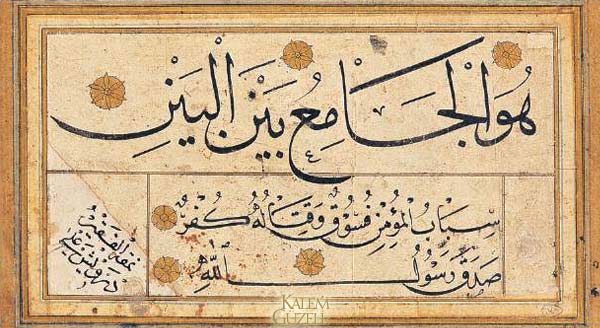 هُوَ الْجَامِعُ بَيْنَ الْبَيْنِ
سِبَابُ الْمُؤْمِنِ فُسُوقٌ وَقِتَالُهُ كُفْرٌ
صَدَقَ رَسُولُ اللّٰهِ
نمقه الفقير
KALEM
GÜZELİ